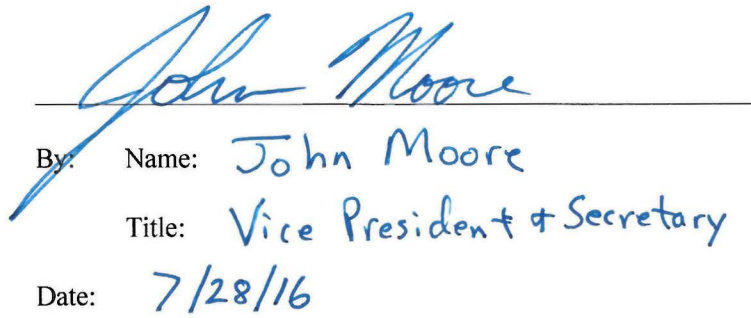 John Moore
By: Name: John Moore
Title: Vice President & Secretary
Date: 7/28/16